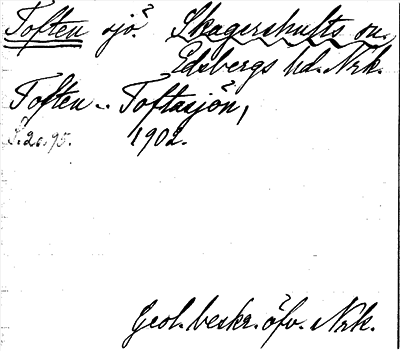 Toften sjö. Skagershults sn.
Edsbergs hd. Nrk.
Toften - Toftasjön,
S. 20. 95. 1902.
Geol. beskr. öfv. Nrk.